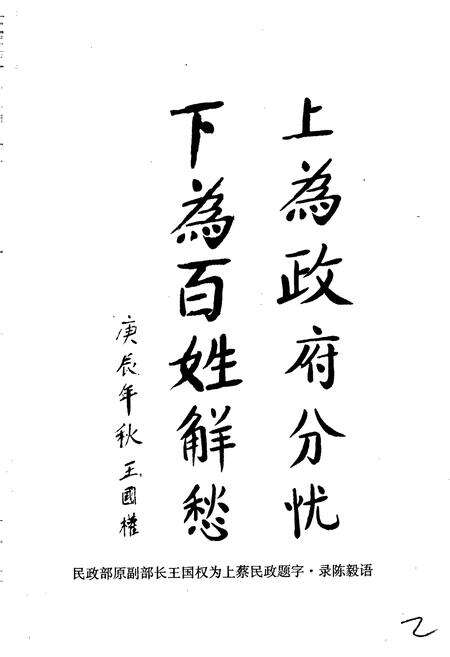 上為政府分忧
下為百姓解愁
庚辰年秋 王國權
民政部原副部长王国权为上蔡民政题字·录陈毅语